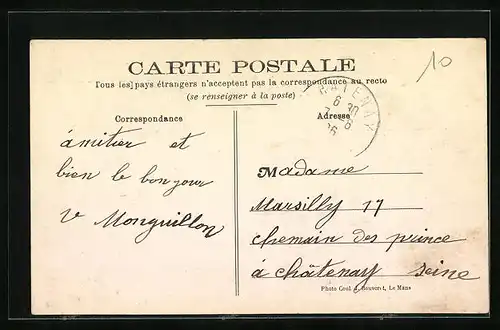 10
CARTE POSTALE
Tous les pays étrangers n'acceptent pas la correspondance au recto
(se renseigner à la poste)
Correspondance
Adresse
CHATENAY
6 30
amitier et
bien le bonjour
v Monguillon
Madame
Marsilly 17
chemain des prince
à châtenay seine
Photo Coul. J. Bouveret, Le Mans